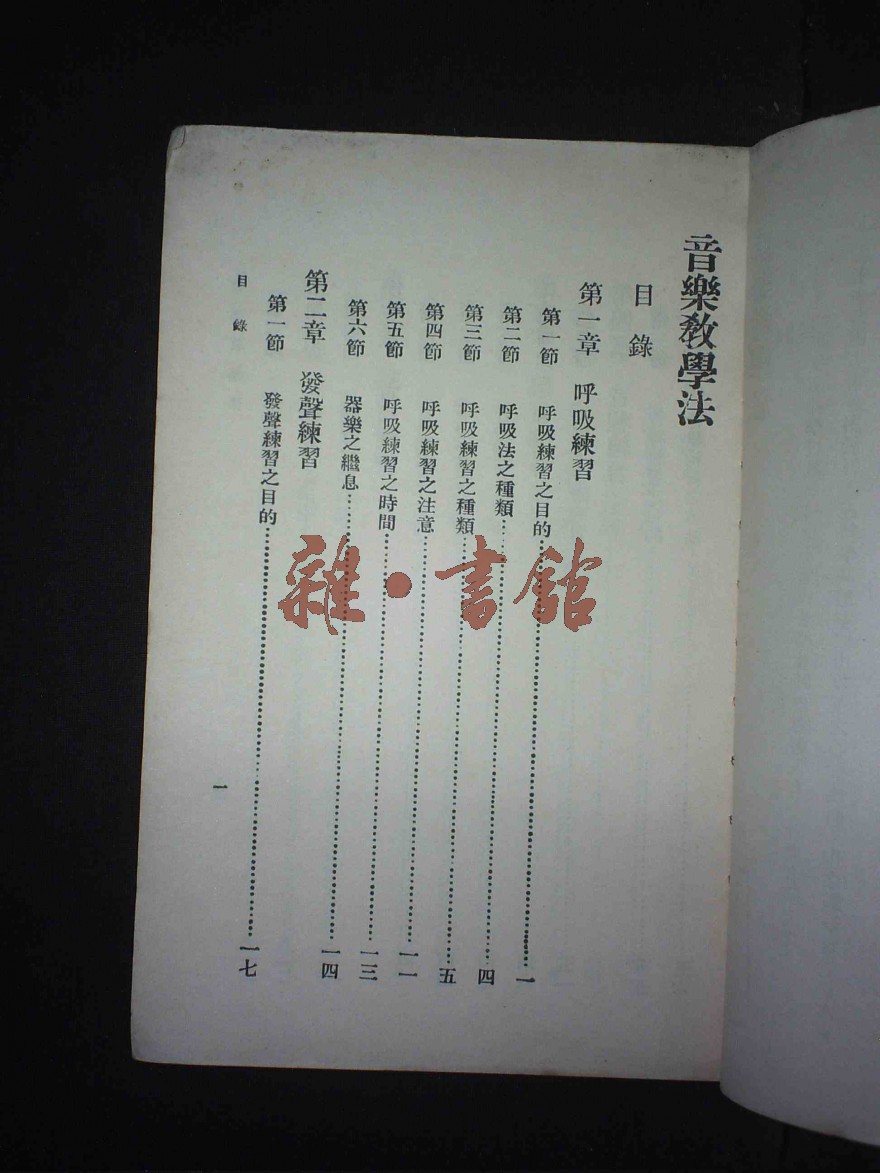 音樂教學法
目錄
第一章 呼吸練習
第一節 呼吸練習之目的……一
第二節 呼吸法之種類……四
第三節 呼吸練習之種類……五
第四節 呼吸練習之注意……一一
第五節 呼吸練習之時間……一三
第六節 器樂之繼息……一四
第二章 發聲練習
第一節 發聲練習之目的……一七
目錄
一
雜·書館